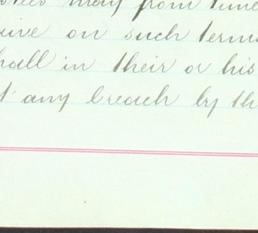 may from time
on such terms
hall in their or his
any breach by th